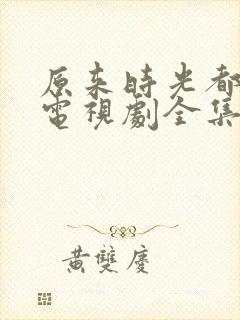 原来時光都
電視劇全集
黄雙慶